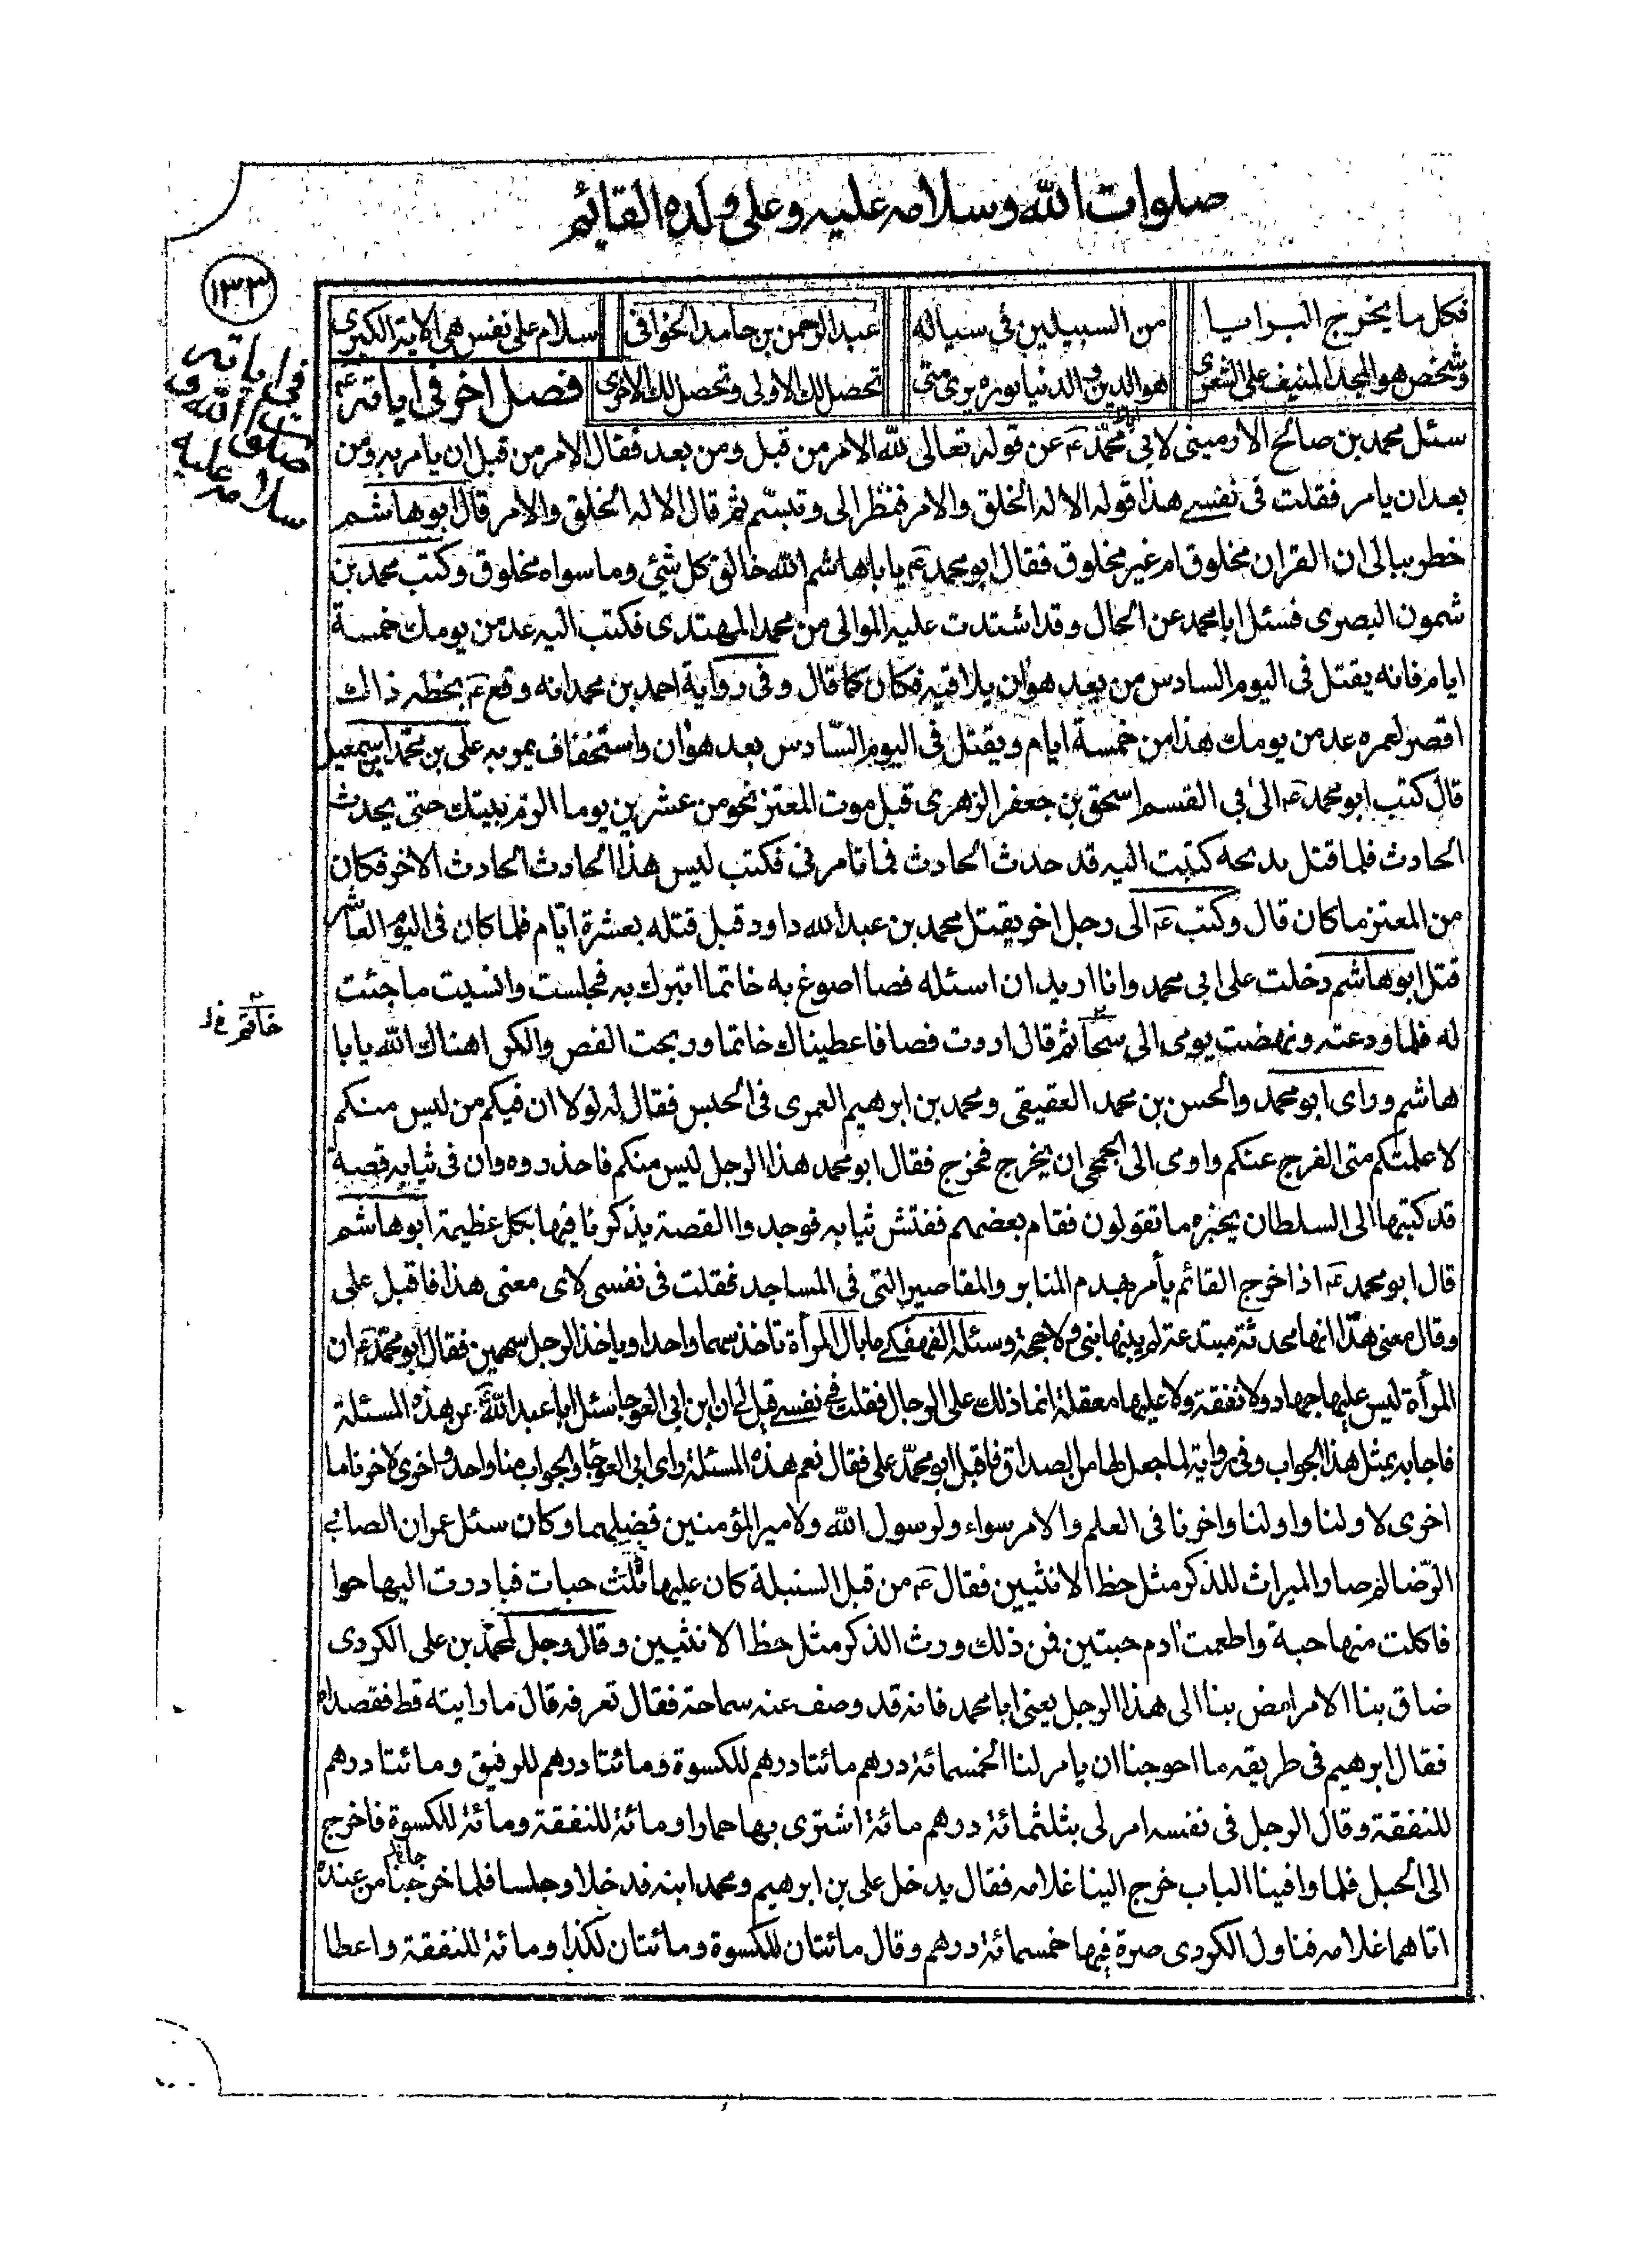 صلوات الله وسلامه عليه وعلى ولده القائم
١٣٣
في اياته صلوات الله و سلامه عليه
فكل ما يخرج البرايا من السبيلين في سباله عبد الرحمن بن حامد الخوافى سلام على نفس هي الاية الكبرى
وشخص هو المجد المنيف على الشعرى هو الدين و الدنيا بوره يرى متى تحصل لك الاولى وتحصل لك الاخرى فصل اخر في اياته ع
سئل محمد بن صالح الارميني لابي محمد ع عن قوله تعالى لله الامر من قبل ومن بعد فقال الامر من قبل ان يامر به ومن
بعد ان يامر فقلت في نفسي هذا قوله الا له الخلق والامر فنظر الى وتبسم ثم قال الا له الخلق والامر قال ابو هاشم
خطر ببالى ان القران مخلوق ام غير مخلوق فقال ابو محمد ع يا ابا هاشم الله خالق كل شئ وما سواه مخلوق وكتب محمد بن
شمون البصرى فسئل ابا محمد عن الحال وقد اشتدت عليه الموالى من محمد المهتدى فكتب اليه عد من يومك خمسة
ايام فانه يقتل في اليوم السادس من بعد هوان يلاقيه فكان كما قال وفى رواية احمد بن محمد انه وقع ع بخطه ذالك
اقصر لعمره عد من يومك هذا من خمسة ايام ويقتل في اليوم السادس بعد هوان واستخفاف يموبه على بن محمد بن اسمعيل
قال كتب ابو محمد ع الى ابى القسم اسحق بن جعفر الزهرى قبل موت المعتز نحو من عشرين يوما الزم بيتك حتى يحدث
الحادث فلما قتل بدبحه كتبت اليه قد حدث الحادث فما تامرنى فكتب ليس هذا الحادث الحادث الاخر فكان
من المعتز ما كان قال وكتب ع الى رجل اخر يقتل محمد بن عبد الله داود قبل قتله بعشرة ايام فلما كان في اليوم العاشر
قتل ابو هاشم دخلت على ابى محمد وانا اريد ان اسئله فصا اصوغ به خاتما اتبرك به فجلست وانسيت ما جئت
له فلما ودعته ونهضت يومى الى ثم قال اردت فصا فاعطيناك خاتما وربحت الفص والكرا هناك الله يا با
خاتم خ ل
هاشم وراى ابو محمد والحسن بن محمد العقيقى ومحمد بن ابرهيم العمرى في الحبس فقال له لولا ان فيكم من ليس منكم
لاعلمتكم متى الفرج عنكم واومى الى الجمحى ان يخرج فخرج فقال ابو محمد هذا الرجل ليس منكم فاحذروه وان في ثيابه قصة
قد كتبها الى السلطان يخبره ما تقولون فقام بعضهم ففتش ثيابه فوجدوا القصة يذكرنا فيها بكل عظيمة ابو هاشم
قال ابو محمد ع اذا خرج القائم يأمر بهدم المنابر والمقاصير التى في المساجد فقلت في نفسى لاى معنى هذا فاقبل على
وقال معنى هذا انها محدثة مبتدعة لم يبنها نبى ولا حجة وسئله الفهفكى ما بال المرأة تاخذ سهما واحدا وياخذ الرجل سهمين فقال ابو محمد ع ان
المرأة ليس عليها جهاد ولا نفقة ولا عليها معقلة انما ذلك على الرجال فقلت في نفسى قيل لى ان ابن ابى العوجا سئل ابا عبد الله ع عن هذه المسئلة
فاجابه بمثل هذا الجواب وفى رواية لما جعل لها من الصداق فاقبل ابو محمد على فقال نعم هذه المسئلة راى ابى العوجا والجواب منا واحد واخرى لاخرنا ما
اخرى لاولنا واولنا واخرنا في العلم والامر سواء ولرسول الله ولامير المؤمنين فضيلهما وكان سئل عمران الصابى
الرضا لم صار الميراث للذكر مثل حظ الانثيين فقال ع من قبل السنبلة كان عليها ثلث حبات فبادرت اليها حوا
فاكلت منها حبة واطعمت ادم حبتين فمن ذلك ورث الذكر مثل حظ الانثيين وقال رجل لمحمد بن على الكردى
ضاق بنا الامر امض بنا الى هذا الرجل يعنى ابا محمد فانه قد وصف عنه سماحة فقال تعرفه قال ما رايته قط فقصداه
فقال ابرهيم في طريقه ما احوجنا ان يامر لنا الخمسمائة درهم مائتا درهم للكسوة ومائتا درهم للرفيق ومائتا درهم
للنفقة وقال الرجل في نفسه امر لى بثلثمائة درهم مائة اشترى بها حمارا ومائة للنفقة ومائة للكسوة فاخرج
الى الجبل فلما وافينا الباب خرج الينا غلامه فقال يدخل على بن ابرهيم ومحمد ابنه فدخلا وجلسا فلما خرجنا من عنده
اتاهما غلامه فناول الكردى صرة فيها خمسمائة درهم وقال مائتان للكسوة ومائتان لكذا ومائة للنفقة واعطا